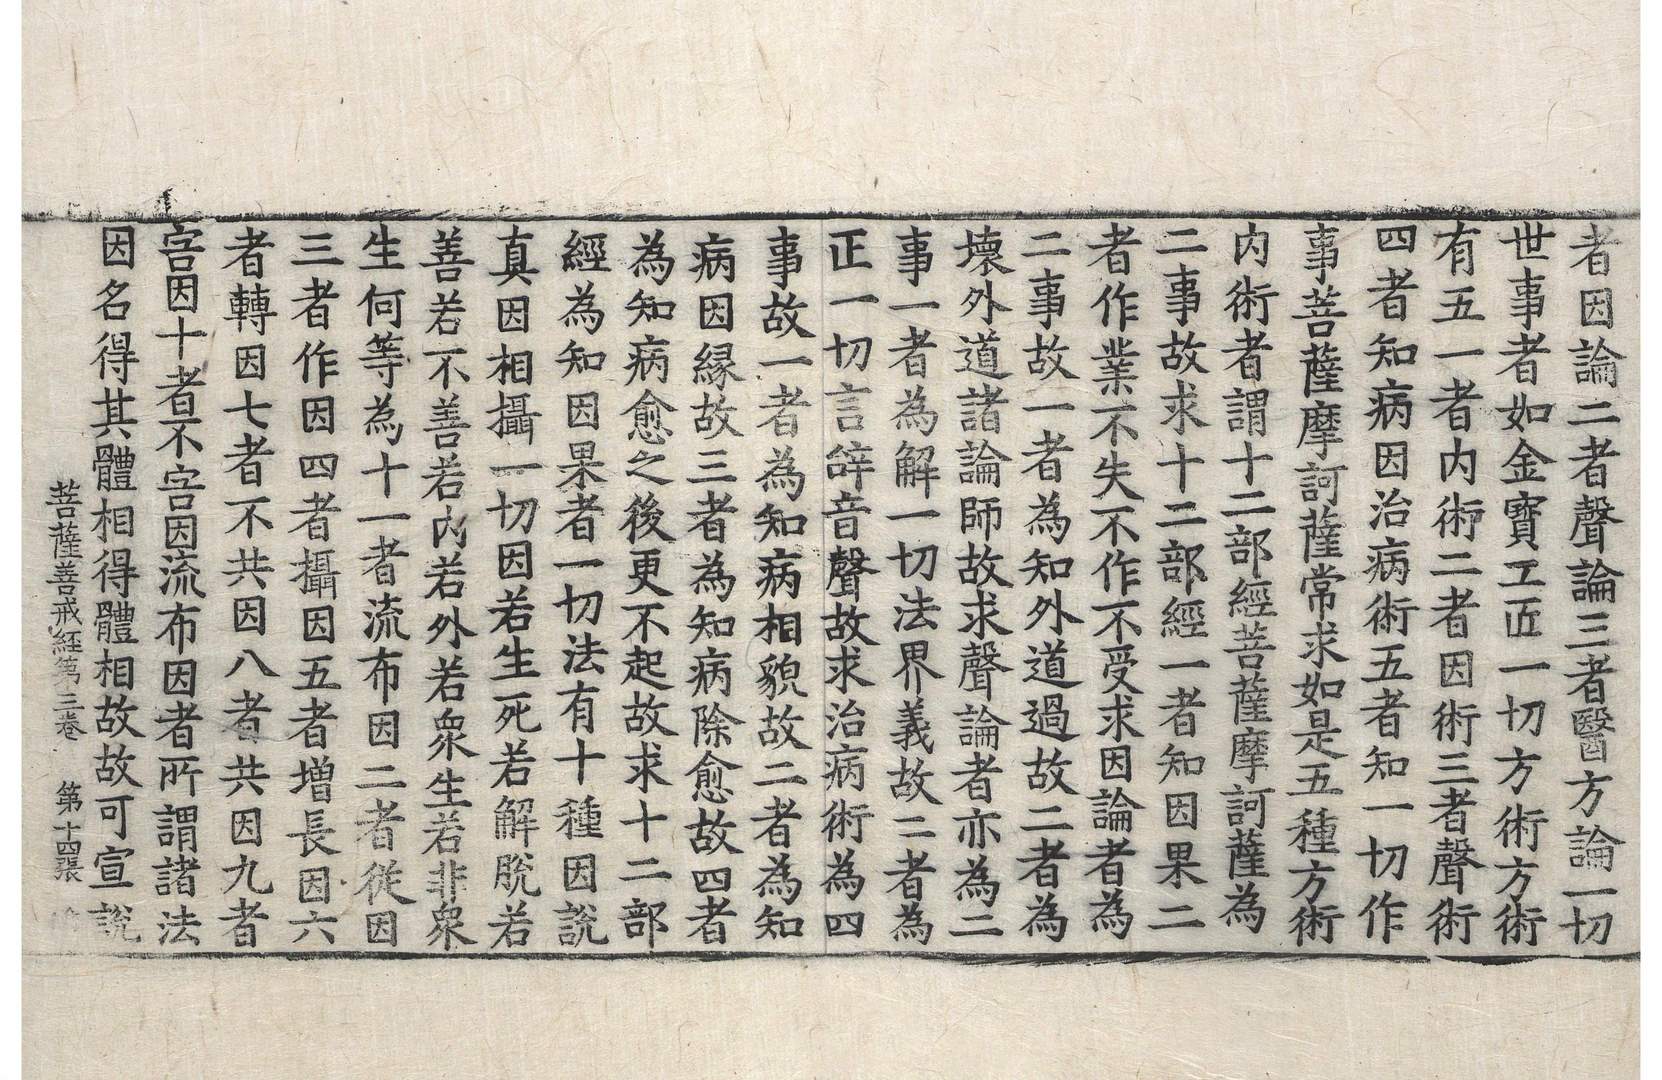 者因論二者聲論三者醫方論一切
世事者如金寶工匠一切方術方術
有五一者内術二者因術三者聲術
四者知病因治病術五者知一切作
事菩薩摩訶薩常求如是五種方術
内術者謂十二部經菩薩摩訶薩為
二事故求十二部經一者知因果二
者作業不失不作不受求因論者為
二事故一者為知外道過故二者為
壞外道諸論師故求聲論者亦為二
事一者為解一切法界義故二者為
正一切言辝音聲故求治病術為四
事故一者為知病相貌故二者為知
病因縁故三者為知病除愈故四者
為知病愈之後更不起故求十二部
經為知因果者一切法有十種因說
真因相攝一切因若生死若解脫若
善若不善若内若外若衆生若非衆
生何等為十一者流布因二者從因
三者作因四者攝因五者增長因六
者轉因七者不共因八者共因九者
害因十者不害因流布因者所謂諸法
因名得其體相得體相故故可宣說
菩薩善戒經第三卷　第十四張